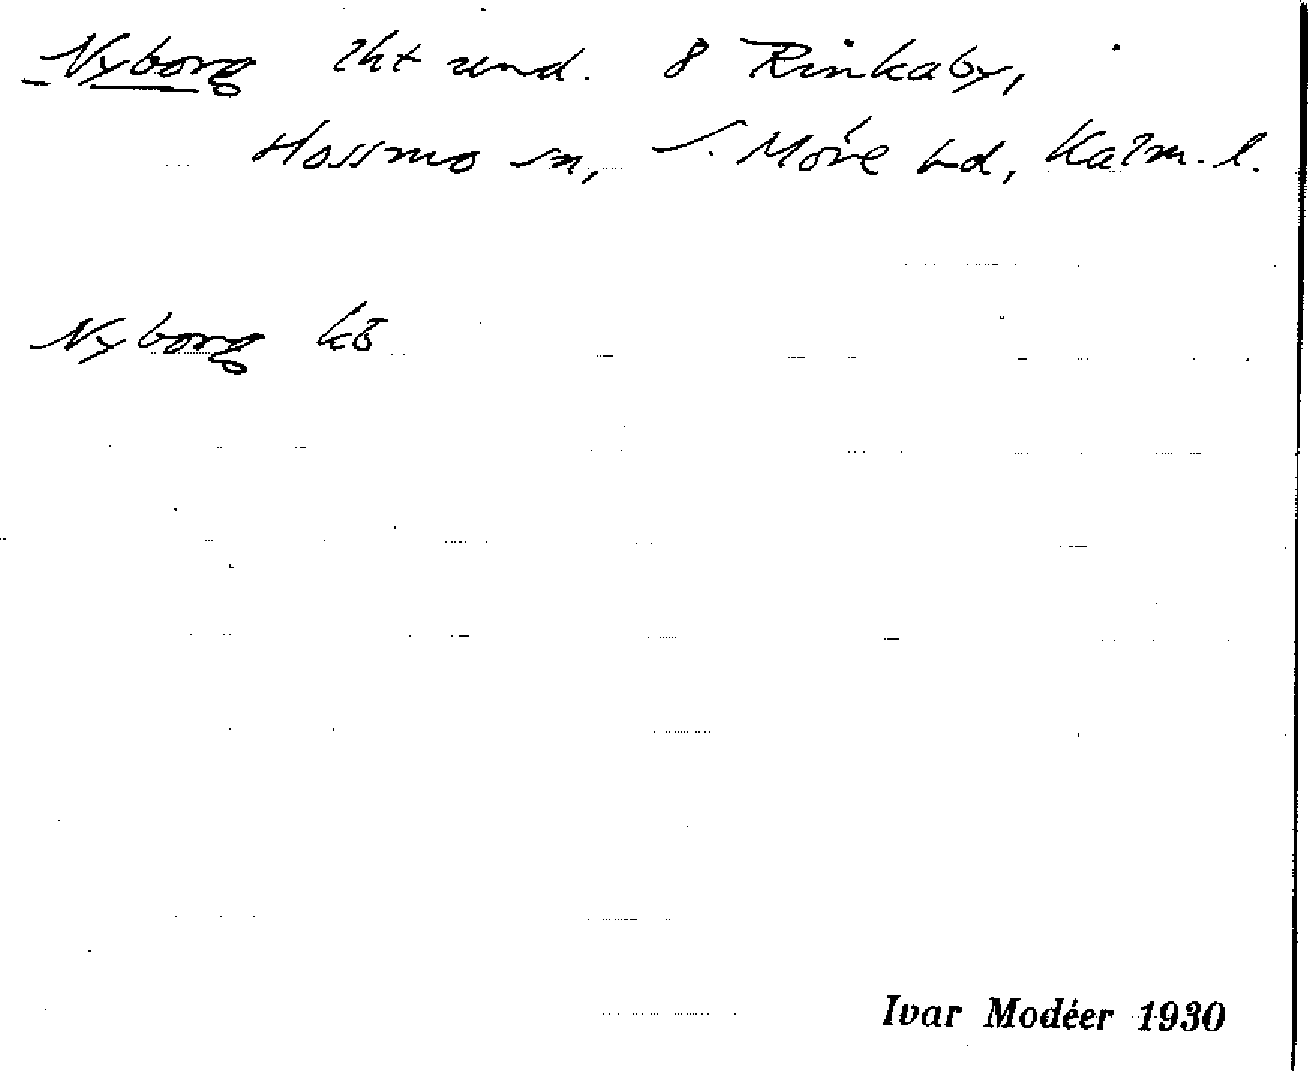 Nyborg lht und. 8 Rinkaby,
Hossmo sn, S. Möre hd, Kalm. l.
Nyborg kö
Ivar Modéer 1930